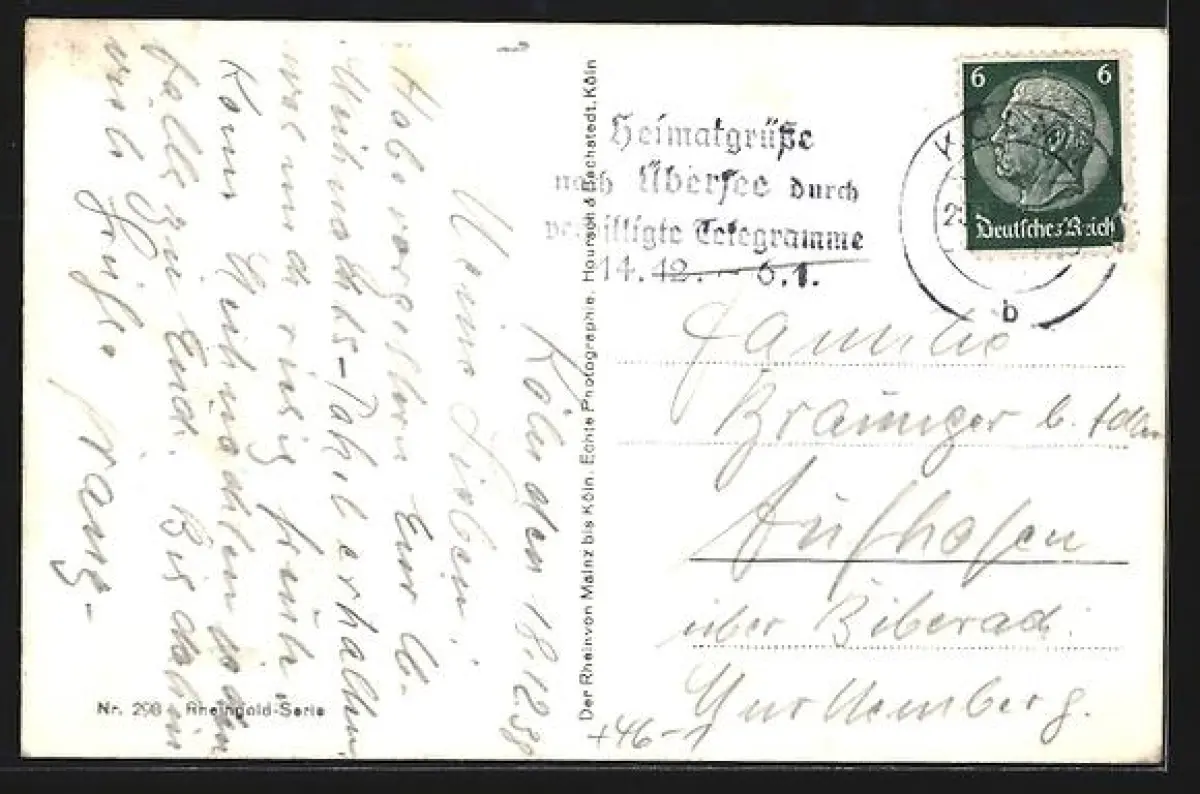 Köln den 18.12.38
Meine Lieben!
Habe vorgestern Eur lb.
Weihnachts-Paket erhalten
mich
Komm Weihnachten
Falls zu Euch. Bis dahin
viele Grüße
Franz-
Nr. 298 Rheingold-Serie
Der Rhein von Mainz bis Köln. Echte Photographie. Hoursch & Bechstedt, Köln
Heimatgrüße
nach Übersee durch
verbilligte Telegramme
14.12. - 6.1.
6 6
Deutsches Reich
b
Familie
Braüniger b. Adler
Aufhofen
über Biberach
Württemberg.
+46-1